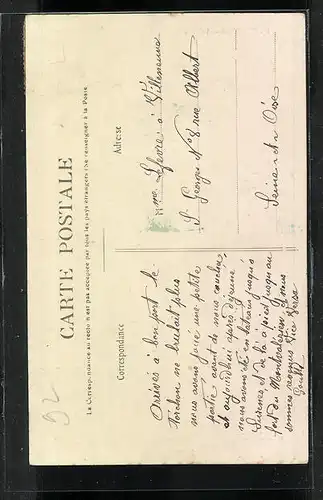 CARTE POSTALE
La Correspondance au recto n'est pas acceptée par tous les pays étrangers (Se renseigner à la Poste)
Correspondance
Adresse
Arrivés à bon port le
torchon ne brulait plus
nous avons joué une petite
partie avant de nous coucher
et aujourdhui après déjeuné
nous avons été en bateau jusqu'à
Suresnes et de là à pied jusqu'au
fort du et nous
sommes revenus
Mme Lefevre à Villeneuve
St Georges No 8 rue Albert
Seine et Oise
92